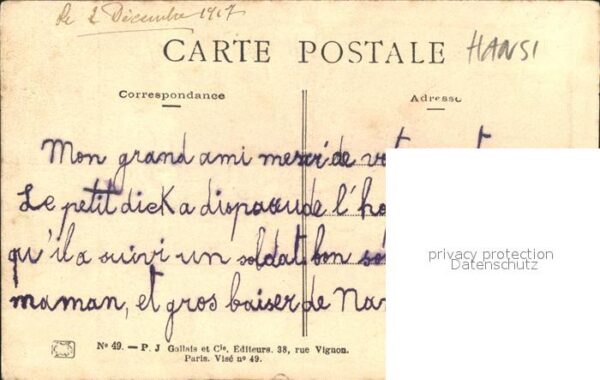 Le 2 Décembre 1917
CARTE POSTALE
HANSI
Correspondance
Adresse
Mon grand ami merci de
Le petit dick a disparu de l'
qu'il a suivi un soldat bon
maman, et gros baiser de
privacy protection
Datenschutz
No 49. — P. J Gallais et Cie, Éditeurs. 38, rue Vignon.
Paris. Visé no 49.